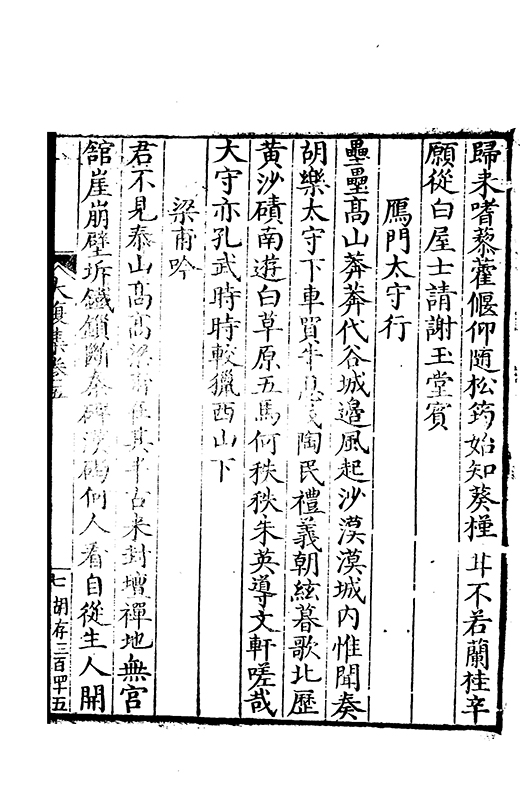 歸来嗜藜藿偃仰隨松筠始知葵槿甘不若蘭桂辛
願從白屋士請謝玉堂賓
鴈門太守行
壘壘髙山莽莽代谷城邉風起沙漠漠城内惟聞奏
胡樂太守下車買牛陶民禮義朝絃暮歌北歷
黄沙磧南遊白草原五馬何秩秩朱英導文軒嗟哉
大守亦孔武時時較獵西山下
梁甫吟
君不見泰山髙髙梁甫在其半古来封壇禪地無宫
舘崖崩壁坼鐵鎖斷秦碑漢碣何人看自從生人開
大復集卷五
七 胡存三百四五